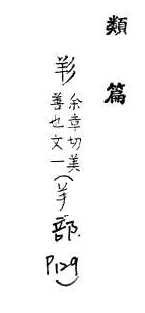 類篇
羏
余章切美
善也文一
(羊部.P129)